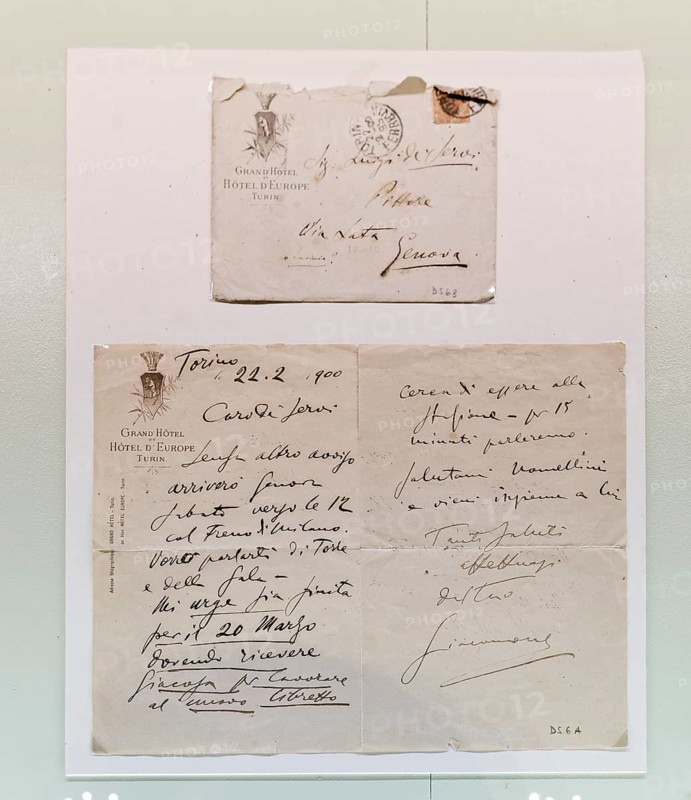 GRAND HÔTEL
ET
HÔTEL D'EUROPE
TURIN
Sig. Luigi de Servi
Pittore
Via Lata
Genova
DS6B
Torino
22.2 1900
GRAND HÔTEL
ET
HÔTEL D'EUROPE
TURIN.
Caro De Servi
Senza altro avviso
arriverò Genova
Sabato verso le 12
col Treno di Milano.
Vorrei parlarti di Torre
e della Sala –
Mi urge sia finita
per il 20 Marzo
dovendo ricevere
Giacosa per lavorare
al nuovo libretto
cerca di essere alla
stazione – per 15
minuti parleremo.
Salutami Nomellini
e vieni insieme a lui
Tanti saluti
affettuosi
dal tuo
Giacomo
DS6A
PHOTO12